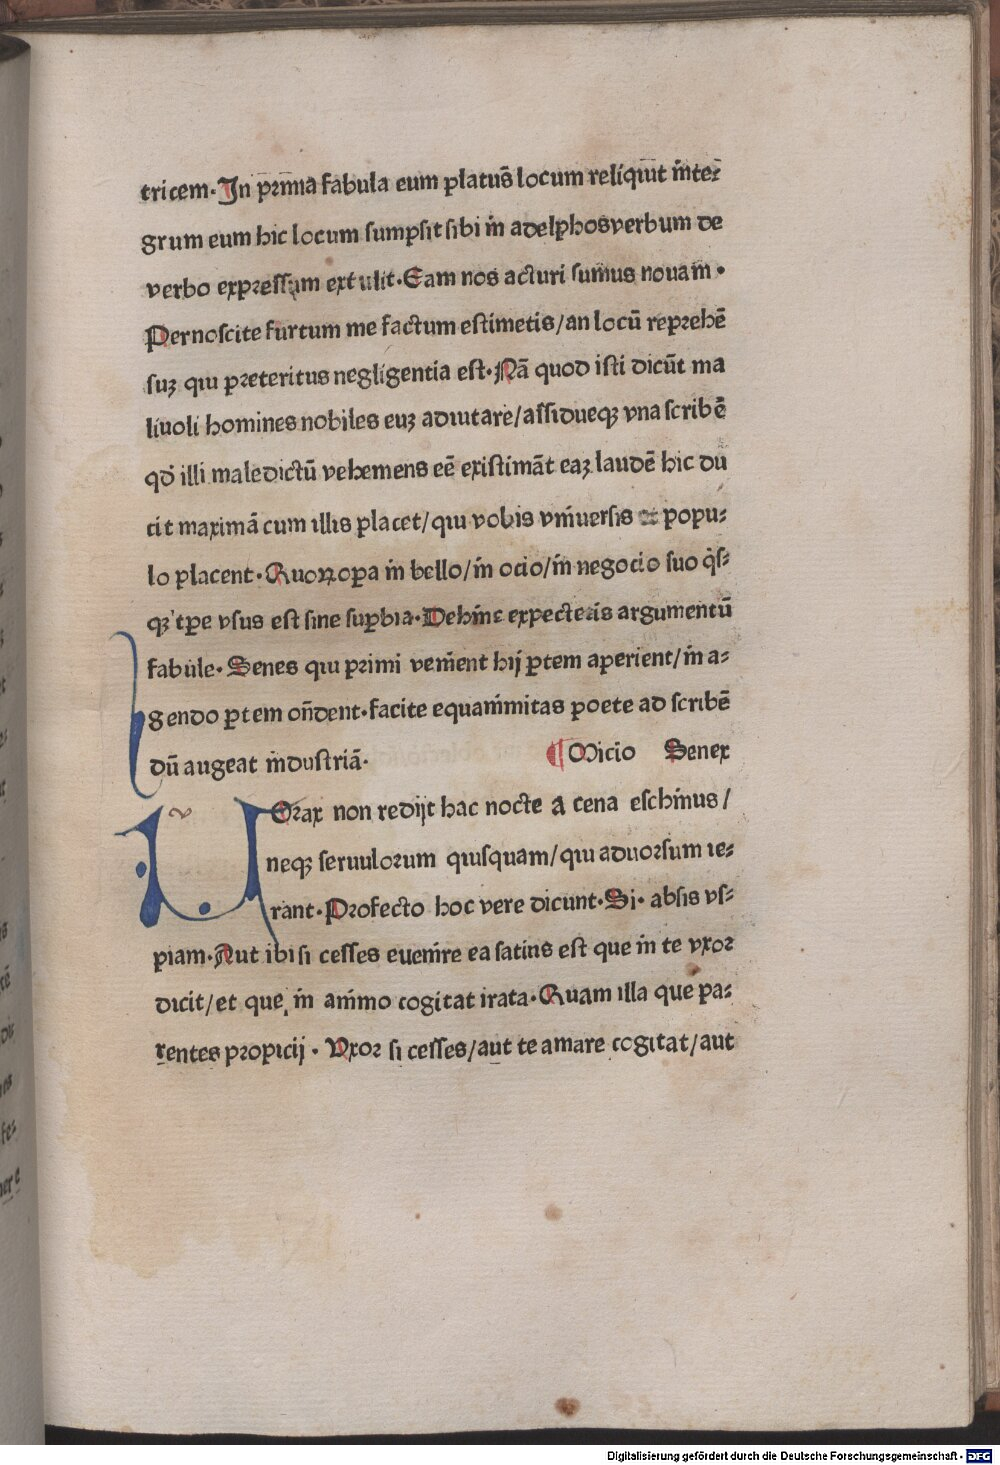 tricem· In prīma fabula eum platus̄ locum reliquit īnte⸗
grum eum hic locum sumpsit sibi in adelphos verbum de
verbo expressum extulit· Eam nos acturi sumus nouam·
Pernoscite furtum me factum estimetis/an locū reprehē
suꝫ qui preteritus negligentia est· Nā quod isti dicūt ma
liuoli homines nobiles euꝫ adiutare/assidueqꝫ vna scribē
qd̄ illi maledictū vehemens eē existimāt eaꝫ laudē hic du
cit maximā cum illis placet/qui vobis vniuersis et popu⸗
lo placent· Quoꝝ oꝑa in bello/in ocio/in negocio suo q̇s⸗
qꝫ tꝑe vsus est sine suꝑbia· Dehinc expecteris argumentū
fabule· Senes qui primi venient hij ꝑtem aperient/in a⸗
gendo ꝑtem on̄dent· facite equanimitas poete ad scribē
dū augeat industriā·
¶ Micio Senex
Orax non redijt hac nocte a cena eschinus/
neqꝫ seruulorum quisquam/qui aduorsum ie⸗
rant· Profecto hoc vere dicunt· Si· absis vs⸗
piam· Aut ibi si cesses euenire ea satius est que in te vxor
dicit/et que in animo cogitat irata· Quam illa que pa⸗
rentes propicij· Vxor si cesses/aut te amare cogitat/aut
Digitalisierung gefördert durch die Deutsche Forschungsgemeinschaft · DFG